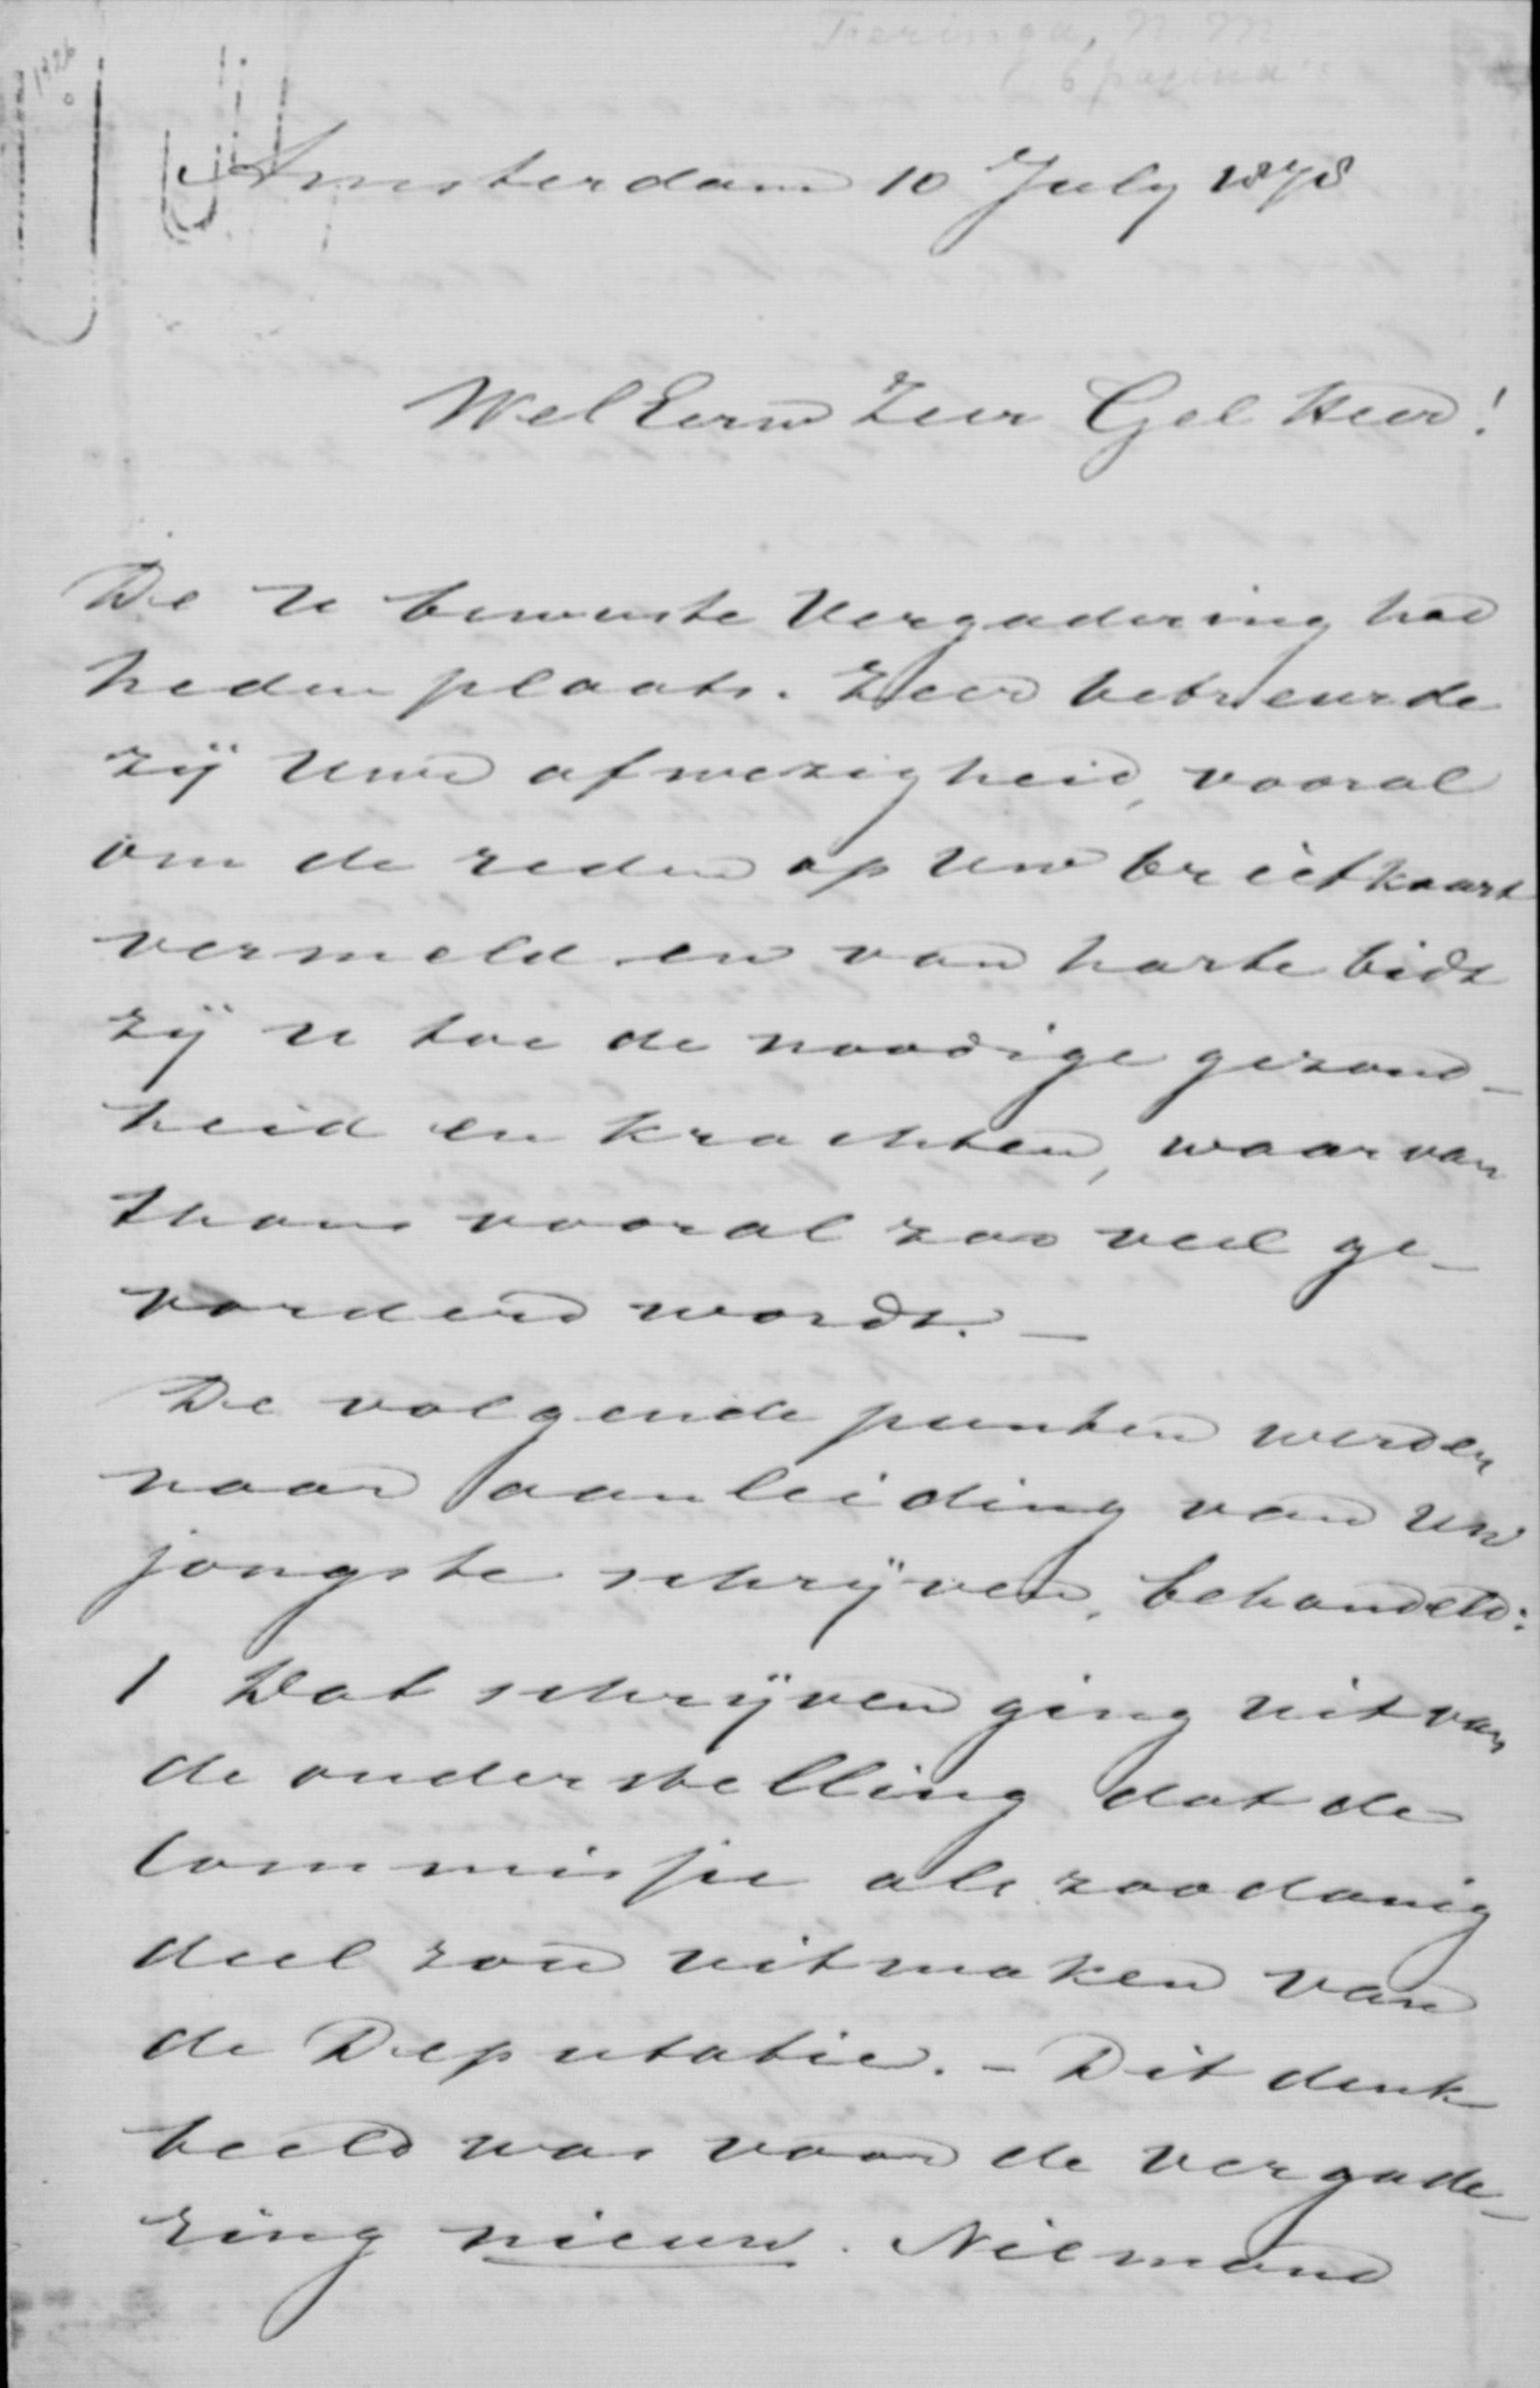 Feringa, N M
6 pagina's
1426
Amsterdam 10 July 1878
WelEerw Zeer Gel Heer!
De U bewuste Vergadering had
heden plaats. Zeer betreurde
zij Uwe afwezigheid, vooral
om de reden op Uw briefkaart
vermeld en van harte bidt
zij U toe de noodige gezond-
heid en krachten, waarvan
thans vooral zoo veel ge-
vorderd wordt. —
De volgende punten werden
naar aanleiding van Uw
jongste schrijven, behandeld:
1 Dat schrijven ging uit van
de onderstelling dat de
Commissie als zoodanig
deel zou uitmaken van
de Deputatie. - Dit denk
beeld was voor de vergade-
ring nieuw. Niemand